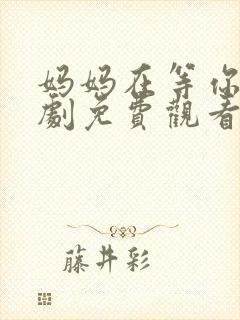 妈妈在等你
劇免費觀看
藤井彩